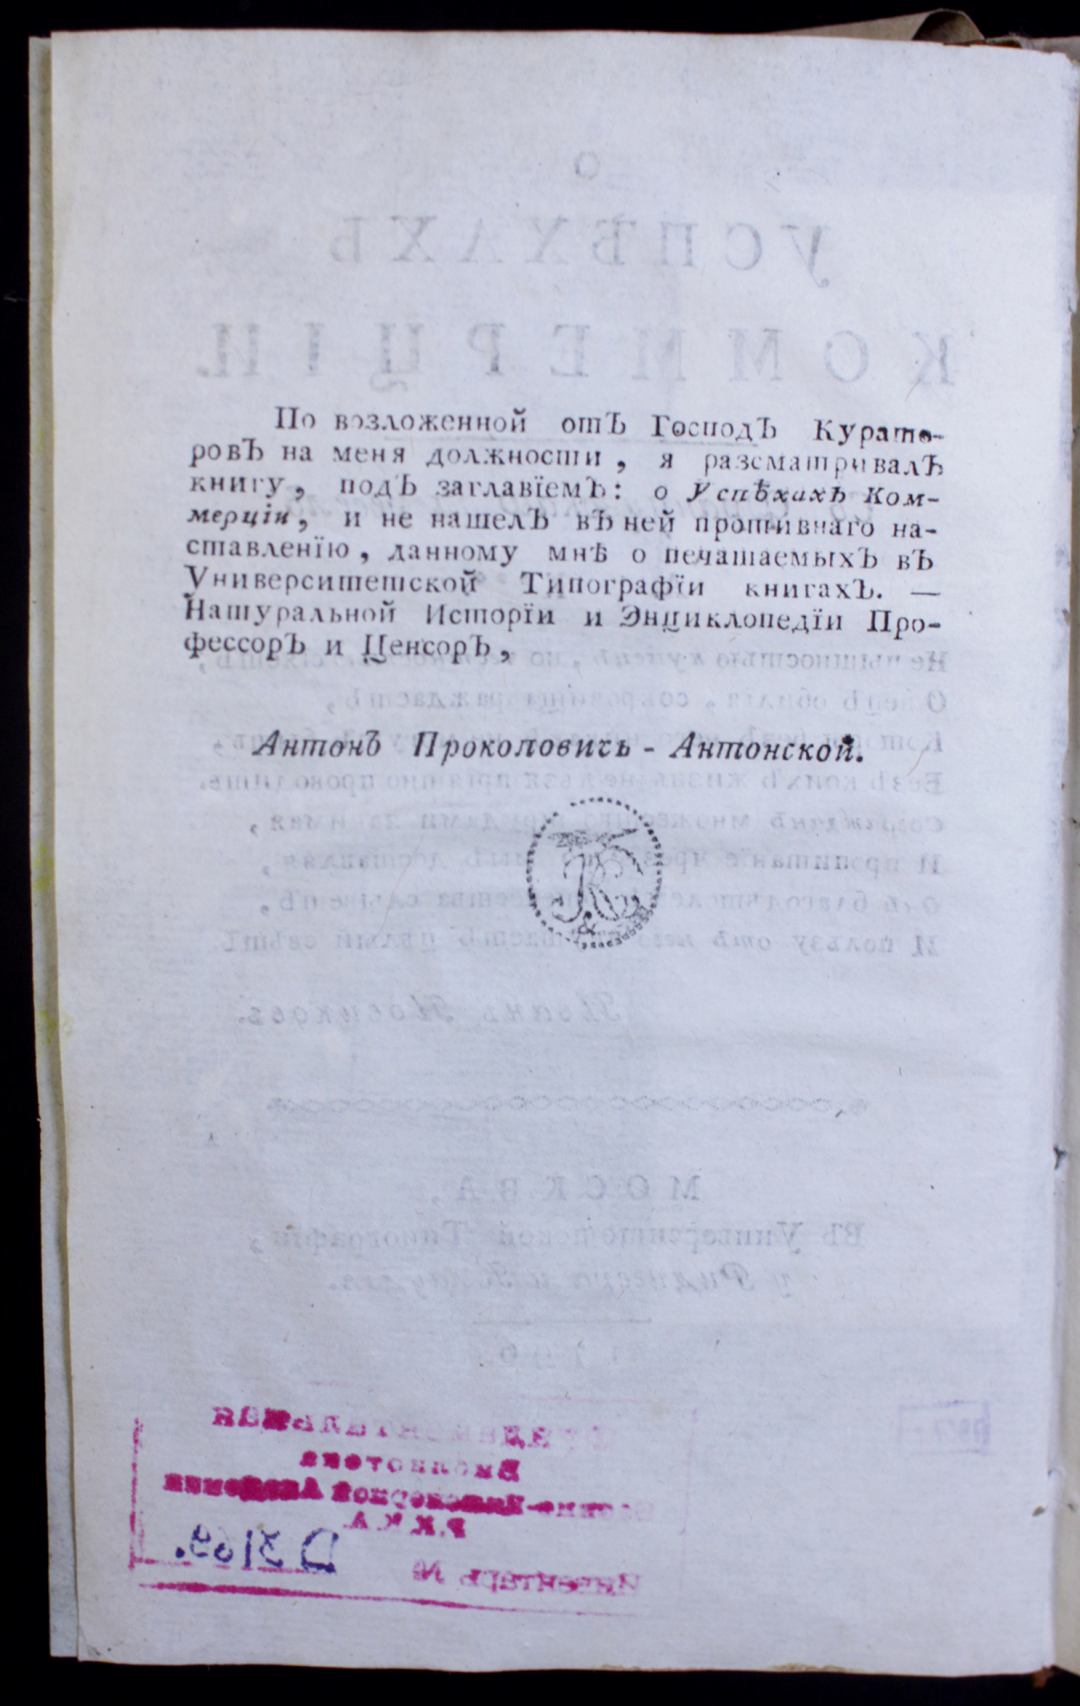 По возложенной отЪ ГосподЪ Курато-
ровЪ на меня должности, я разсматривалЪ
книгу, подЪ заглавїемЪ: о Успѣхахъ Ком-
мерціи, и не нашелЪ вЪ ней противнаго на-
ставленїю, данному мнѣ о печатаемыхЪ вЪ
Университетской Типографїи книгахЪ. —
Натуральной Исторїи и Энциклопедїи Про-
фессорЪ и ЦенсорЪ,
АнтонЪ Проколовичь - Антонской.